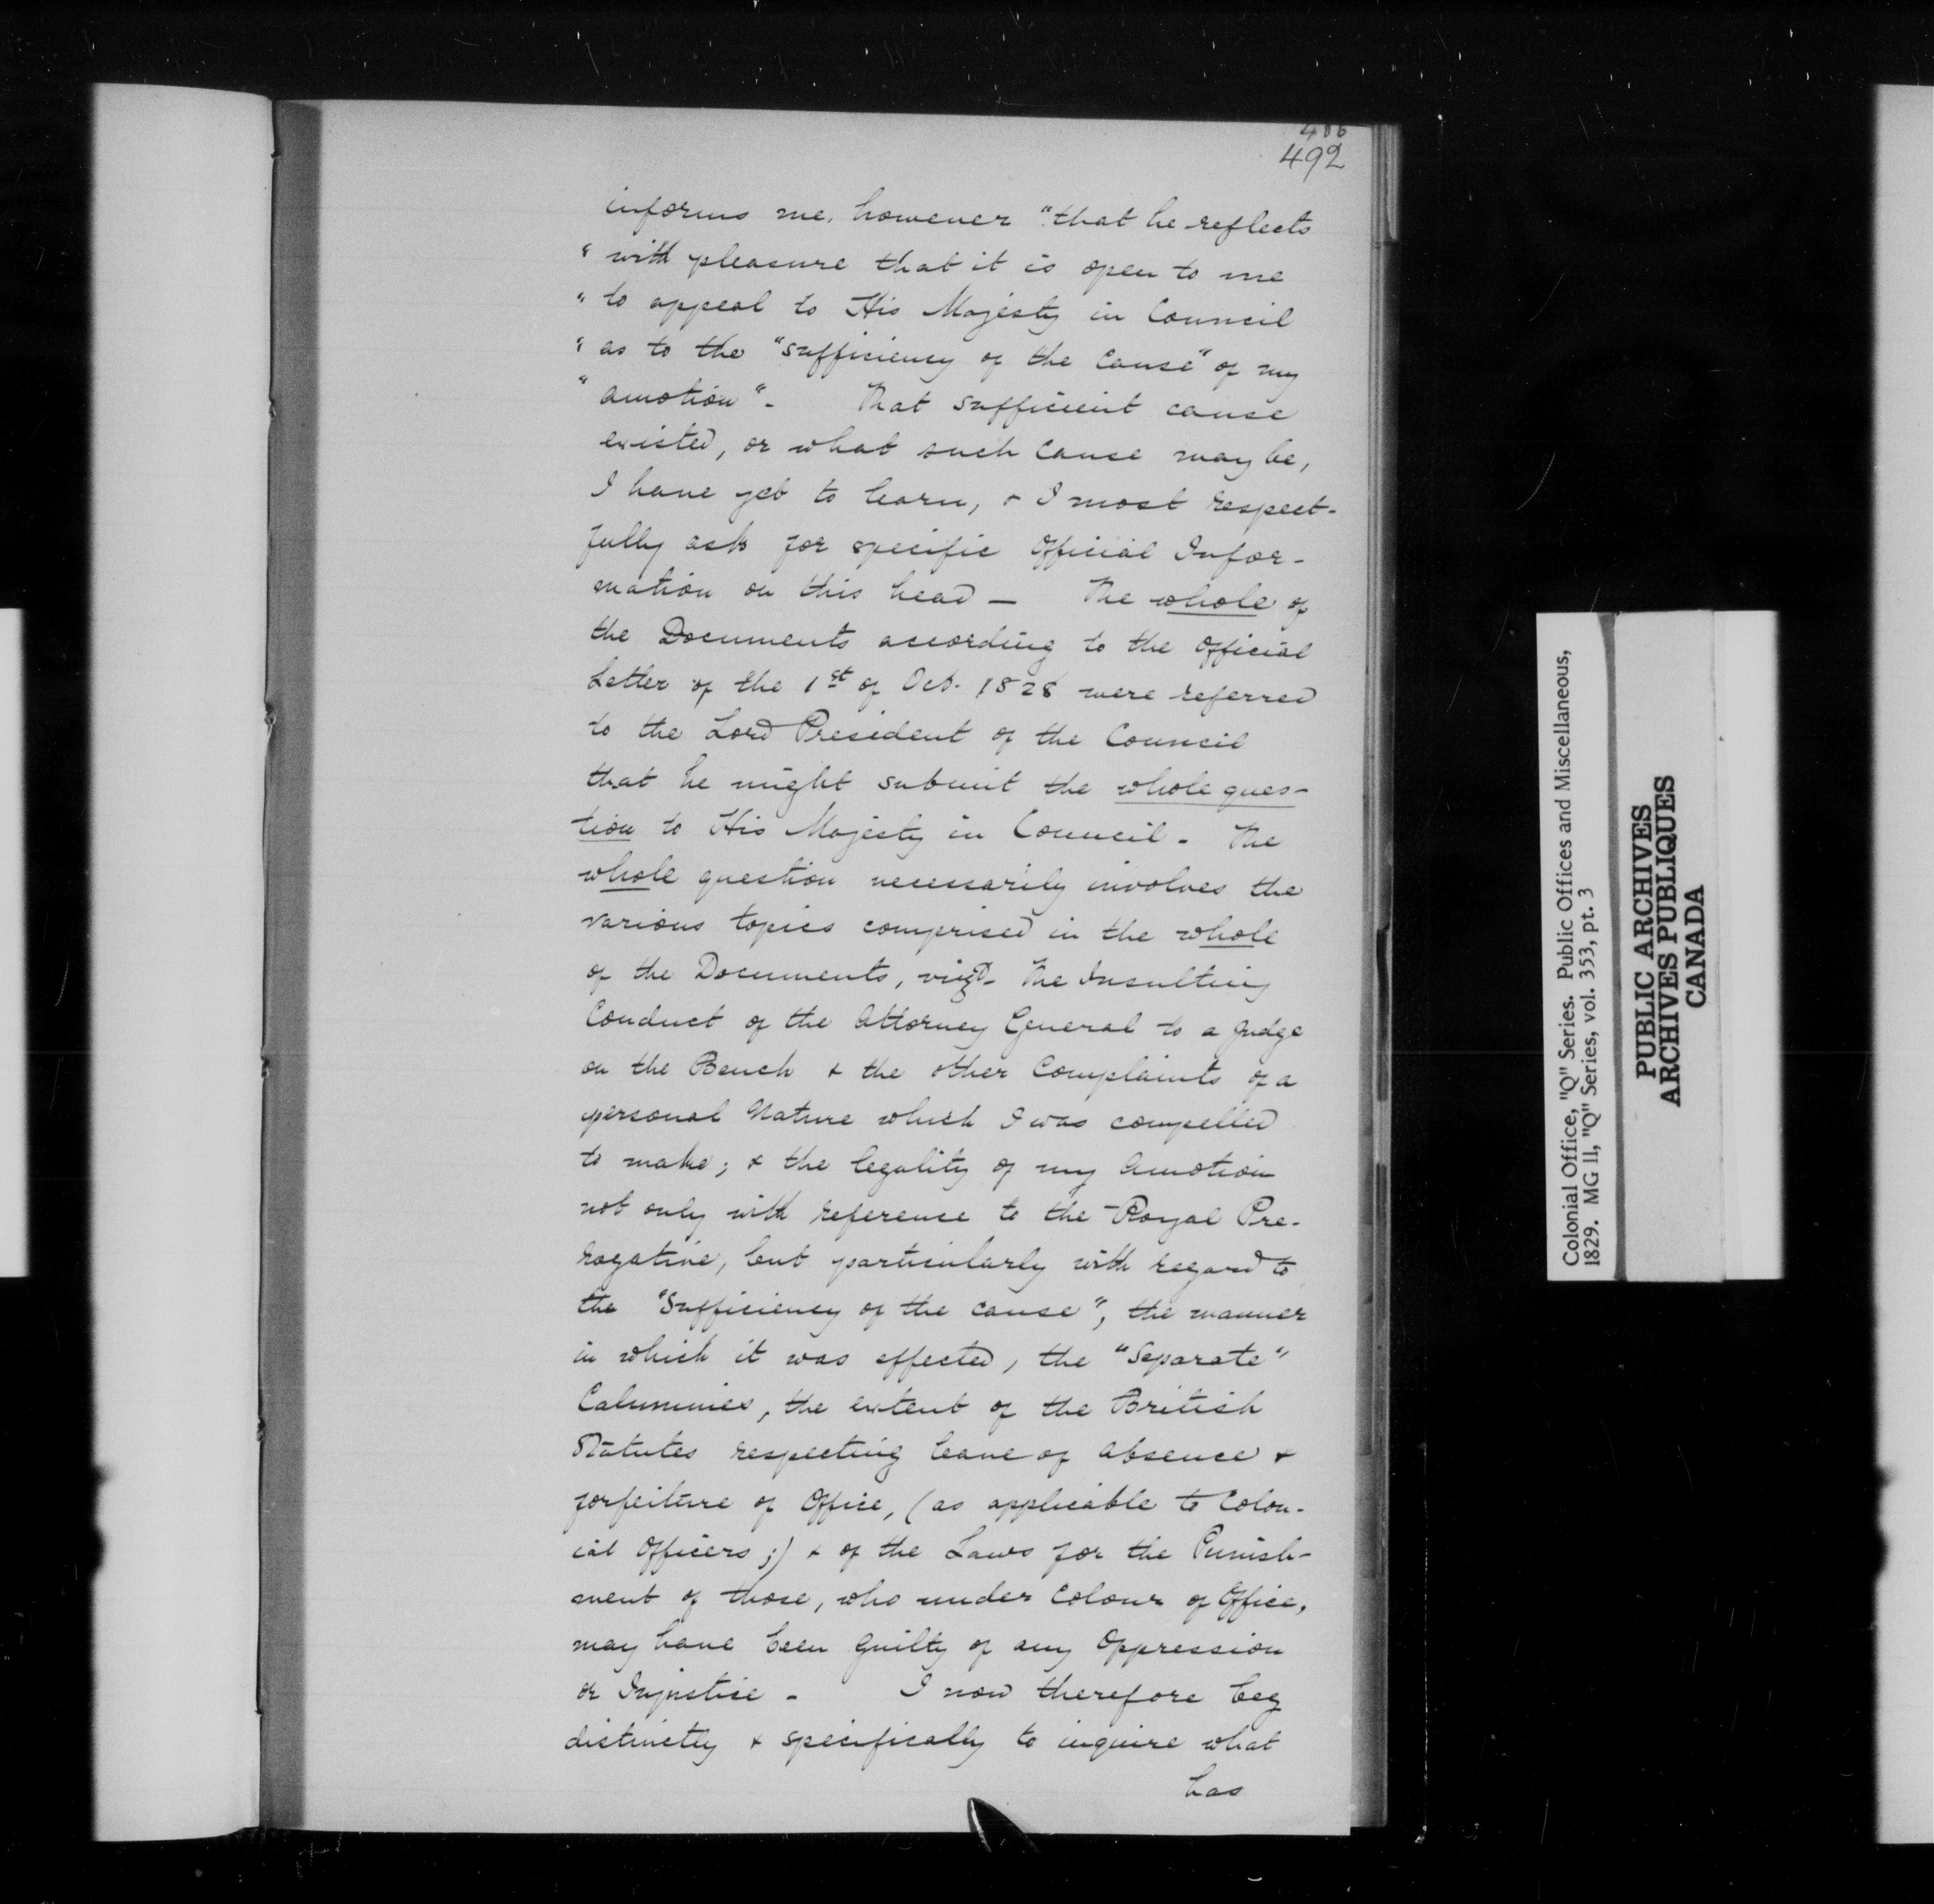 486
492
informs me, however "that he reflects
" with pleasure that it is open to me
" to appeal to His Majesty in Council
" as to the "sufficiency of the Cause" of my
" amotion" - That sufficient cause
existed, or what such Cause may be,
I have yet to learn, & I most respect-
fully ask for specific Official Infor-
mation on this head — The whole of
the Documents according to the Official
Letter of the 1st of Oct. 1828 were referred
to the Lord President of the Council
that he might submit the whole ques-
tion to His Majesty in Council - The
whole question necessarily involves the
various topics comprised in the whole
of the Documents, vizt- The Insulting
Conduct of the Attorney General to a Judge
on the Bench & the other Complaints of a
personal Nature which I was compelled
to make; & the legality of my Amotion
not only with reference to the Royal Pre-
rogative, but particularly with regard to
the "Sufficiency of the cause", the manner
in which it was effected, the "Separate"
Calumnies, the extent of the British
Statutes respecting leave of absence &
forfeiture of Office, (as applicable to Colon-
ial Officers;) & of the Laws for the Punish-
ment of those, who under Colour of Office,
may have been guilty of any Oppression
or Injustice - I now therefore beg
distinctly & specifically to inquire what
has
Colonial Office, "Q" Series. Public Offices and Miscellaneous,
1829. MG 11, "Q" Series, vol. 353, pt. 3
PUBLIC ARCHIVES
ARCHIVES PUBLIQUES
CANADA